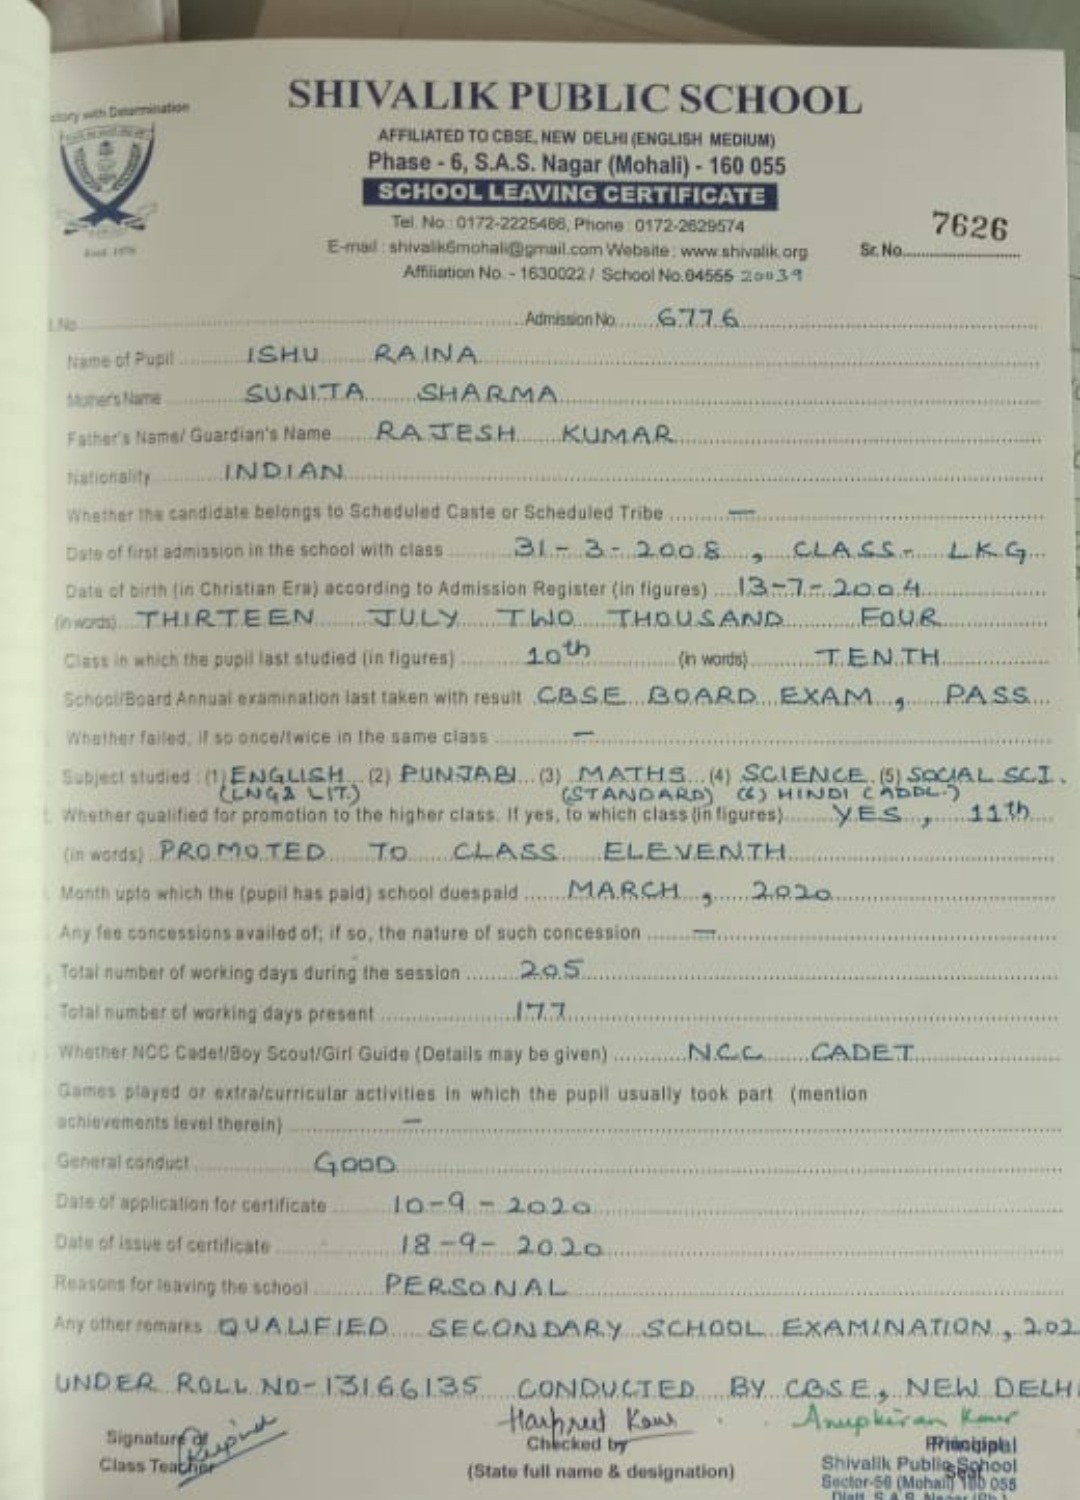 SHIVALIK PUBLIC SCHOOL
AFFILIATED TO CBSE, NEW DELHI (ENGLISH MEDIUM)
Phase - 6, S.A.S. Nagar (Mohali) - 160 055
SCHOOL LEAVING CERTIFICATE
Tel. No.: 0172-2225466, Phone : 0172-2629574
E-mail : shivalik6mohali@gmail.com Website : www.shivalik.org
Affiliation No. - 1630022 / School No.04555 20039
with Determination
Sr. No. 7626
Admission No. 6776
Name of Pupil ISHU RAINA
Mother's Name SUNITA SHARMA
Father's Name/ Guardian's Name RAJESH KUMAR
Nationality INDIAN
Whether the candidate belongs to Scheduled Caste or Scheduled Tribe —
Date of first admission in the school with class 31-3-2008, CLASS- LKG
Date of birth (in Christian Era) according to Admission Register (in figures) 13-7-2004
(in words) THIRTEEN JULY TWO THOUSAND FOUR
Class in which the pupil last studied (in figures) 10th (in words) TENTH
School/Board Annual examination last taken with result CBSE BOARD EXAM, PASS
Whether failed, if so once/twice in the same class —
Subject studied : (1) ENGLISH (2) PUNJABI (3) MATHS (4) SCIENCE (5) SOCIAL SCI.
(LNG & LIT.) (STANDARD) (6) HINDI (ADDL.)
Whether qualified for promotion to the higher class. If yes, to which class (in figures) YES, 11th
(in words) PROMOTED TO CLASS ELEVENTH
Month upto which the (pupil has paid) school duespaid MARCH, 2020
Any fee concessions availed of; if so, the nature of such concession —
Total number of working days during the session 205
Total number of working days present 177
Whether NCC Cadet/Boy Scout/Girl Guide (Details may be given) NCC CADET
Games played or extra/curricular activities in which the pupil usually took part (mention
achievements level therein) —
General conduct GOOD
Date of application for certificate 10-9-2020
Date of issue of certificate 18-9-2020
Reasons for leaving the school PERSONAL
Any other remarks QUALIFIED SECONDARY SCHOOL EXAMINATION, 202
UNDER ROLL NO-13166135 CONDUCTED BY CBSE, NEW DELHI
Harpreet Kaur Anupkiran Kaur
Signature of Checked by Principal
Class Teacher (State full name & designation) Shivalik Public School
Sector-56 (Mohali) 160 055